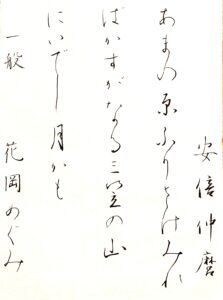 安倍仲麿
あまの原ふりさけみれ
ばかすがなる三笠の山
にいでし月かも
一般 花岡めぐみ